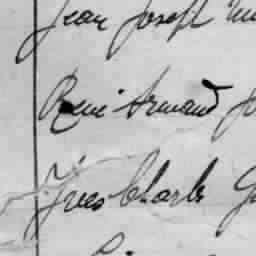 Jean Joseph
René Armand
Yves Charles